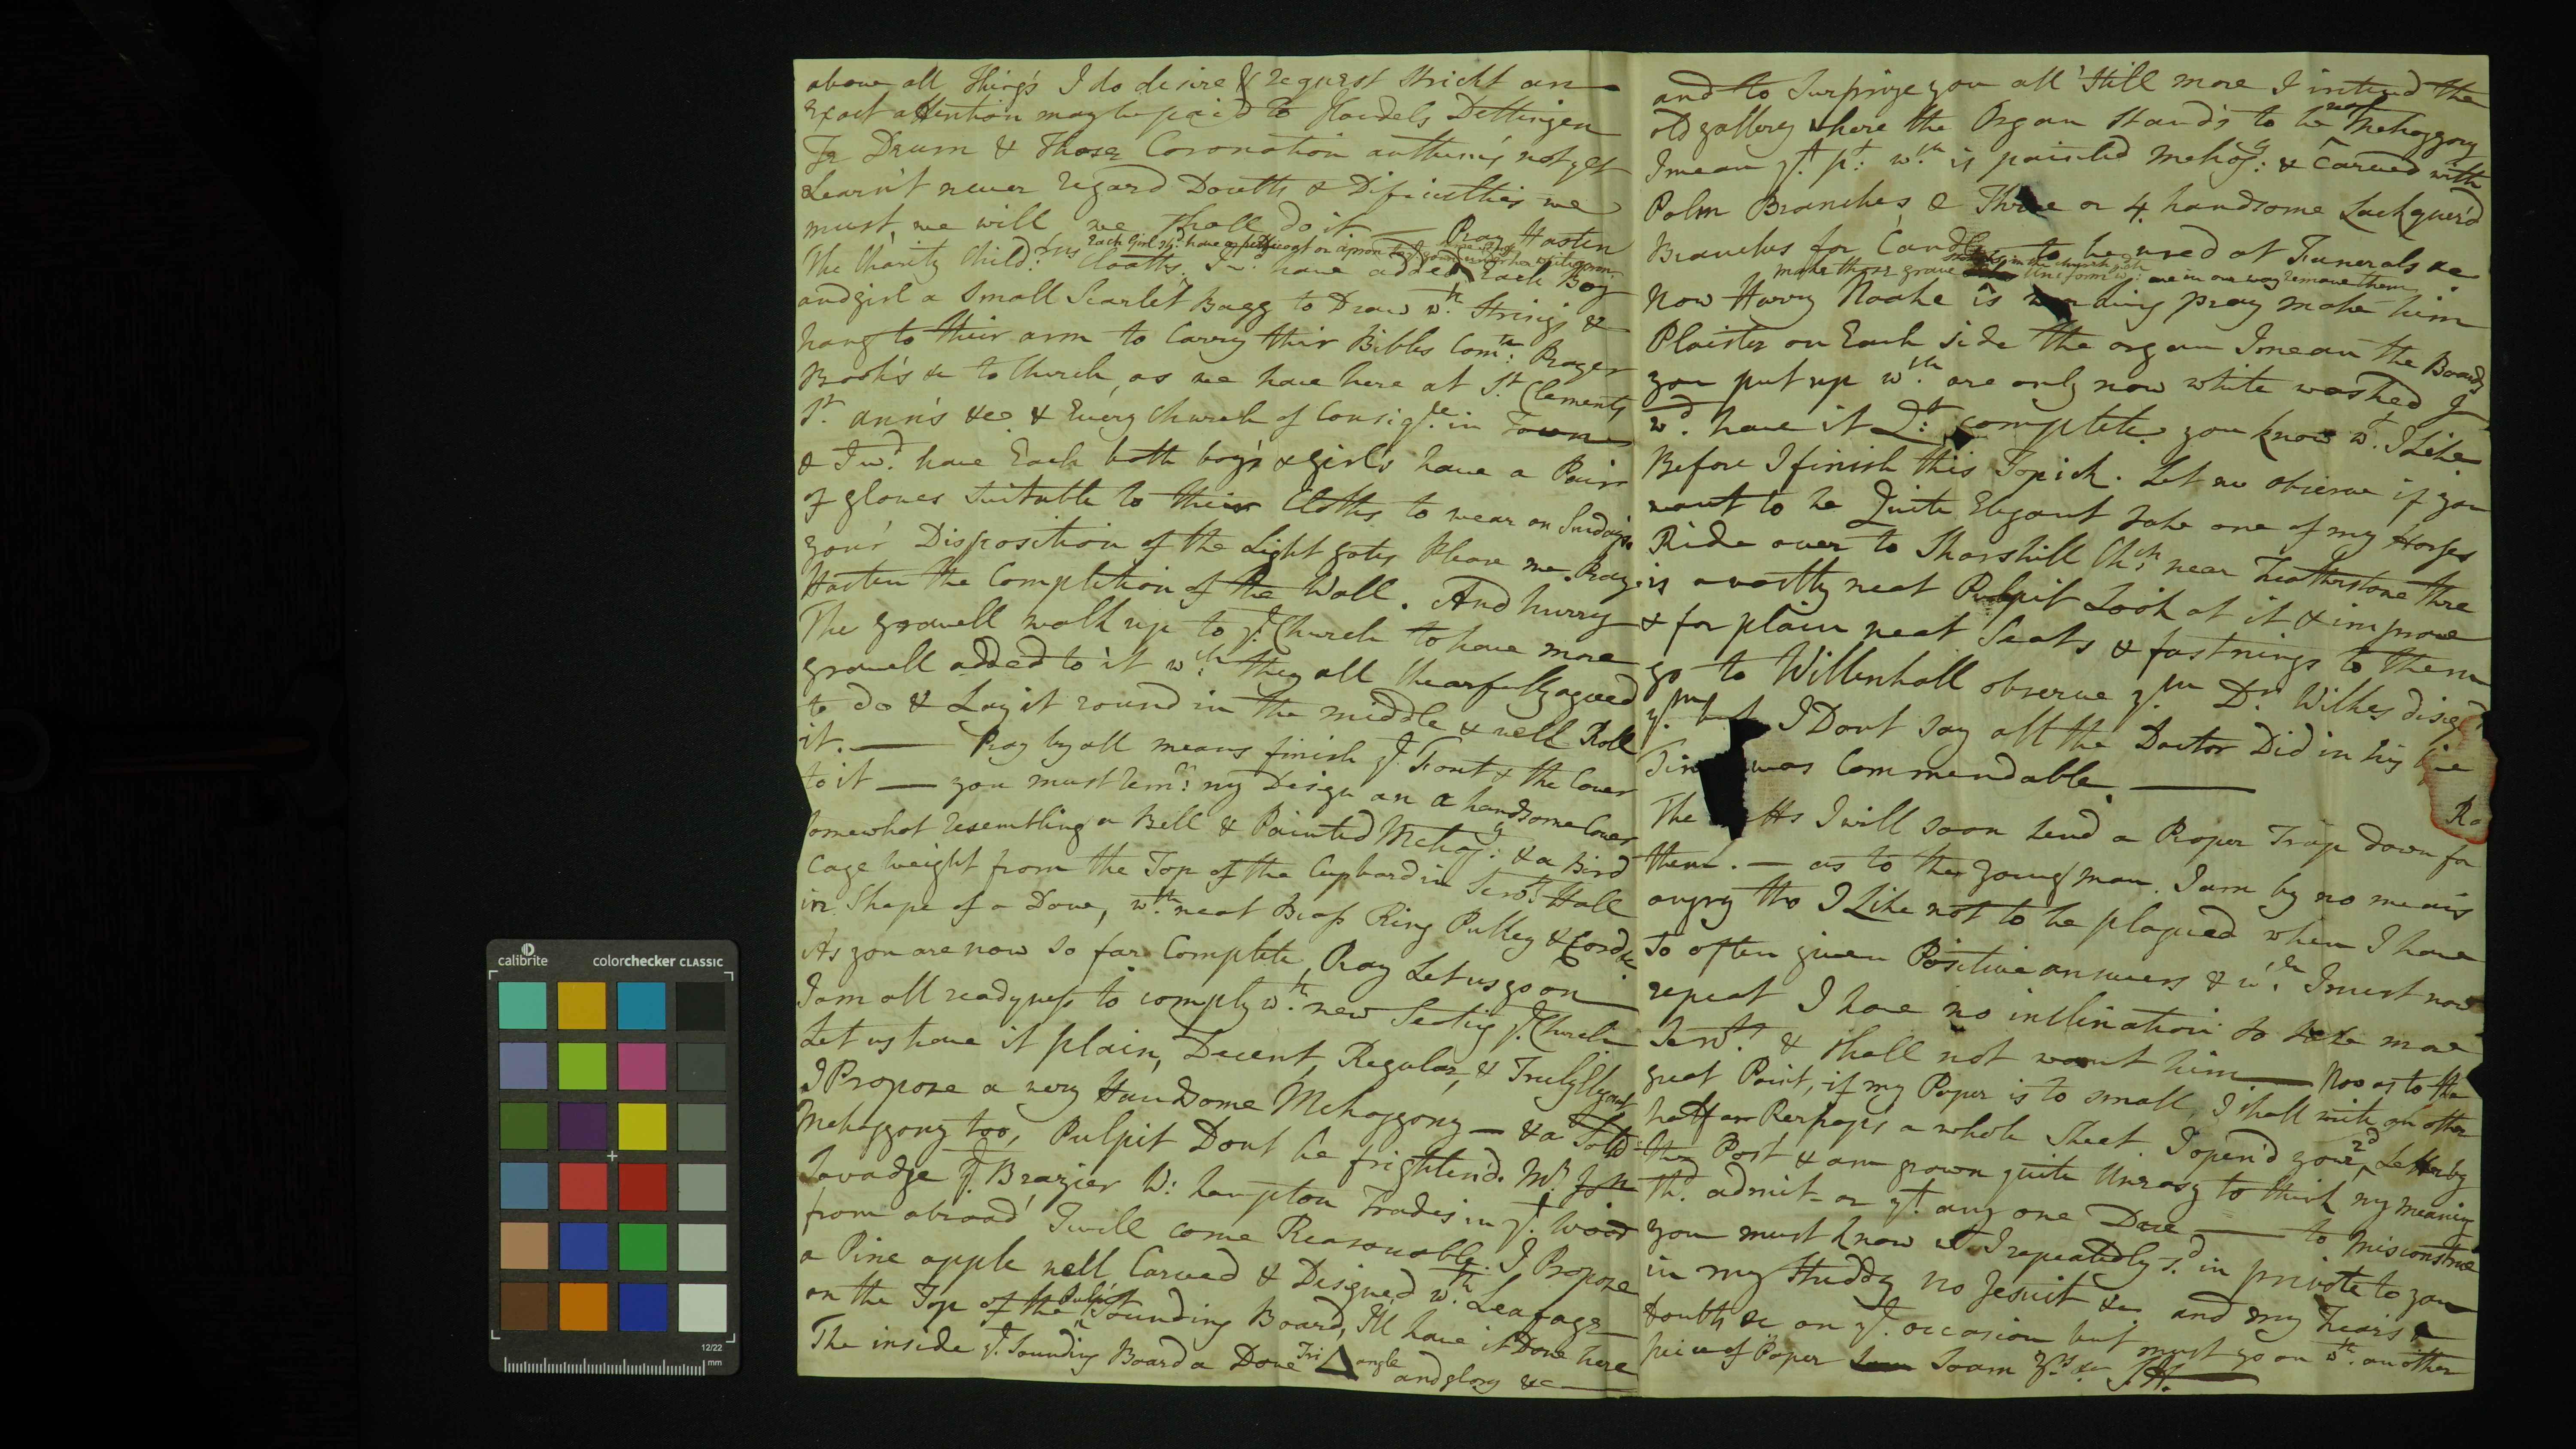 above all things I do desire & request strickt an
Exact attention may be paid to Handels Dettingen
Te Deum & those Coronation anthem's not yet
Learn't never regard Doubts & Dificulthies we
must, we will we shall do it — Pray Hasten
Each Girl shd. have a petticoat or apron
The Charity Child:rens Cloaths. I wd. have added Each Boy
and girl a Small Scarlet Bagg to Draw wth. Strings &
hang to their arm to Carry their Bibles Comn: Prayer
Book's &c to Church, as we have here at St. Clements
St. Ann's &c. & Every Church of Consige. in Town
& I wd. have Each both boy's & girl's have a Pair
of gloves Suitable to their Cloths to wear on Sundays.
your Disposition of the Light gates Please me. Pray
Hasten the Completion of the Wall. And hurry
The gravell walk up to ye. Church to have more
gravell added to it wch. they all chearfully agreed
to do & Lay it round in the middle & well Roll
it. — Pray by all means finish ye. Font & the Cover
to it — you must rem: my Design on a handsome Cover
somewhat resembling a Bell & Painted Mehogy: & a Bird
Cage weight from the Top of the Cupbard in Servts. Hall
in Shape of a Dove, wth. neat Brass Ring Pulley & Cord &c.
As you are now so far Complete, Pray Let us go on
I am all readyness to comply wth. new Seatig ye. Church
Let us have it plain, Decent, Regular, & Truly Elegant
I Propose a very Handsome Mehoggony — & a Solid
Mehoggony too, Pulpit Dont be frightend. Mr. Jn
Savadge ye. Brazier W: hampton Trades in yt. Wood
from abroad Twill come Reasonable. I Propose
a Pine apple well Carved & Designed wth. Leafage
on the Top of the Pulpit Sounding Board, I'll have it Done here
The inside ye. Sounding Board a Dove Tri angle and glory &c —
and to Surprize you all Still more I intend the
old gallery where the Organ Stands to be real Mehoggony
I mean yt. pt. wch. is painted mehogy: & Carved with
Palm Branches & Three or 4 handsome Lackquer'd
Branches for Candles to be used at Funerals &c.
make those grave stones in the church Uniform wch. are in our way remove them
Now Harry Noake is working pray make him
Plaister on Each side the organ I mean the Boards
you put up wch. are only now white washed I
wd. have it Qt. complete you know wt. I Like.
Before I finish this Topick. Let me observe if you
want to be Quite Elegant take one of my Horses
Ride over to Sharshill Chh: near Featherstone there
is a vastly neat Pulpit Look at it & improve
& for plain neat Seats & fastnings to them
go to Willenhall observe ym Dr. Wilkes disigd
ym but I Dont say all the Doctor Did in his
Time was Commendable. —
The I will soon send a Proper Trap down for
Ra
them. — as to the young man. I am by no means
angry tho I Like not to be plagued when I have
so often given Positive answers & wch. I must now
repeat I have no inclination to take more
Servts. & shall not want him — Now as to the
great Point, if my Paper is to small, I shall write on other
half or Perhaps a whole Sheet. I open'd your 2d Letter by
the Post & am grown quite Uneasy to think my meaning
shd. admit or yt. any one Dare — to misconstrue
you must know wt. I repeatedly sd. in private to you
in my Studdy no Jesuit &c. and my Fears &
doubts &c on yt. occasion but must go on wth. another
piece of Paper Soam Yrs. &c J.H.